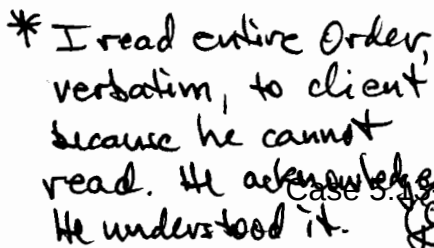 * I read entire Order,
verbatim, to client
because he cannot
read. He acknowledge
Case 5:13
He understood it.